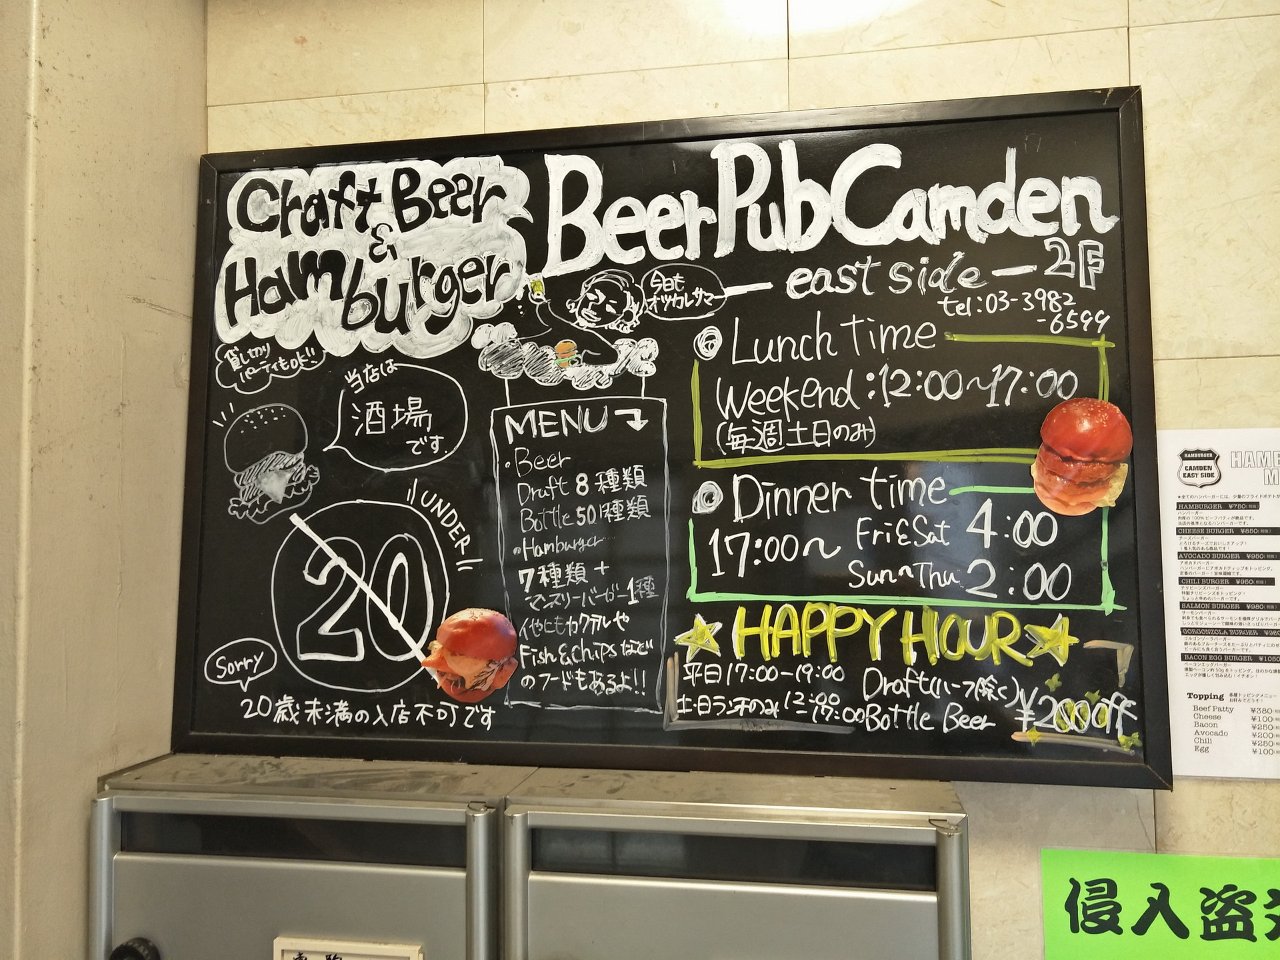 Craft Beer
&
Hamburger
Beer Pub Camden
east side 2F
tel:03-3982
-6599
今日も
オツカレサマー
貸し切り
パーティもOK!!
当店は
酒場
です.
UNDER
20
Sorry
20歳未満の入店不可です
MENU
・Beer
Draft 8種類
Bottle 50種類
・Hamburger
7種類+
マンスリーバーガー1種
他にもカクテルや
Fish&chipsなど
のフードもあるよ!!
Lunch time
Weekend:12:00~17:00
(毎週土日のみ)
Dinner time
17:00~
Fri&Sat 4:00
Sun~Thu 2:00
HAPPY HOUR
平日17:00-19:00
土・日ランチのみ12:00
-17:00
Draft(ハーフ除く)
Bottle Beer
¥200off
HAMBURGER
CAMDEN
EAST SIDE
HAMB
M
HAMBURGER ¥780
ハンバーガー
CHEESE BURGER ¥880
チーズバーガー
AVOCADO BURGER ¥980
アボカドバーガー
CHILI BURGER ¥980
チリビーンズバーガー
SALMON BURGER ¥980
サーモンバーガー
GORGONZOLA BURGER
ゴルゴンゾーラバーガー
BACON EGG BURGER
ベーコンエッグバーガー
Topping
Beef Patty ¥380
Cheese ¥100
Bacon ¥250
Avocado ¥200
Chili ¥250
Egg ¥100
侵入盗